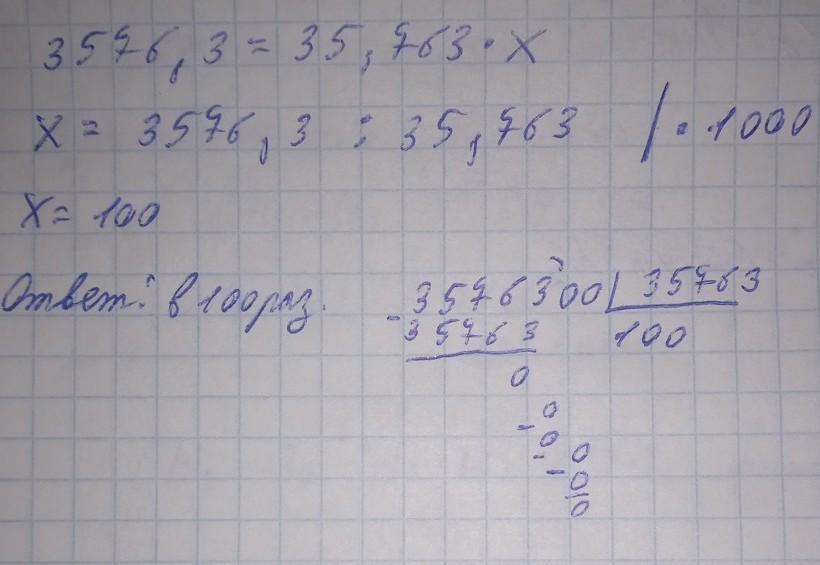 3576,3 = 35,763 · X
X = 3576,3 : 35,763 / · 1000
X = 100
Ответ: в 100 раз.
3576300 | 35763
- 35763 100
0
- 0
0
- 0
0
0